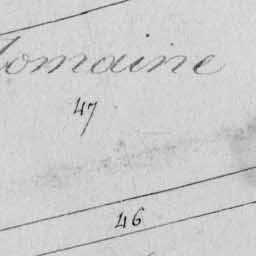 Domaine
47
46